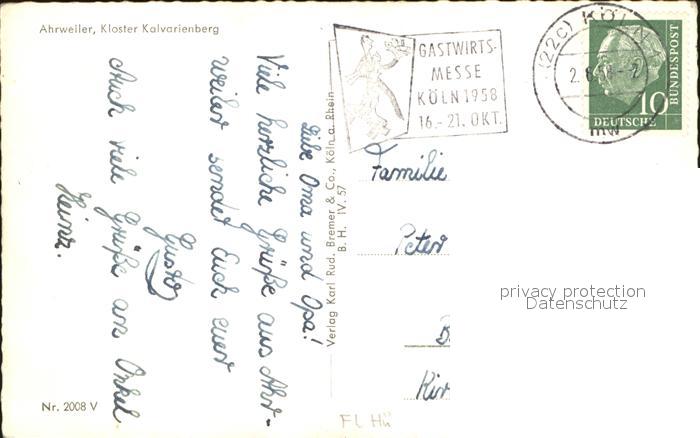 Ahrweiler, Kloster Kalvarienberg
Liebe Oma und Opa!
Viele herzliche Grüße aus Ahr-
weiler sendet Euch euer
Gusto
Auch viele Grüße an Onkel
Heinz.
Nr. 2008 V
Verlag Karl Rud. Bremer & Co., Köln a. Rhein
B. H. IV. 57
GASTWIRTS-
MESSE
KÖLN 1958
16.-21. OKT.
(22c) KÖLN
mw
10
DEUTSCHE
BUNDESPOST
Familie
Peter
privacy protection
Datenschutz
Fl Hü